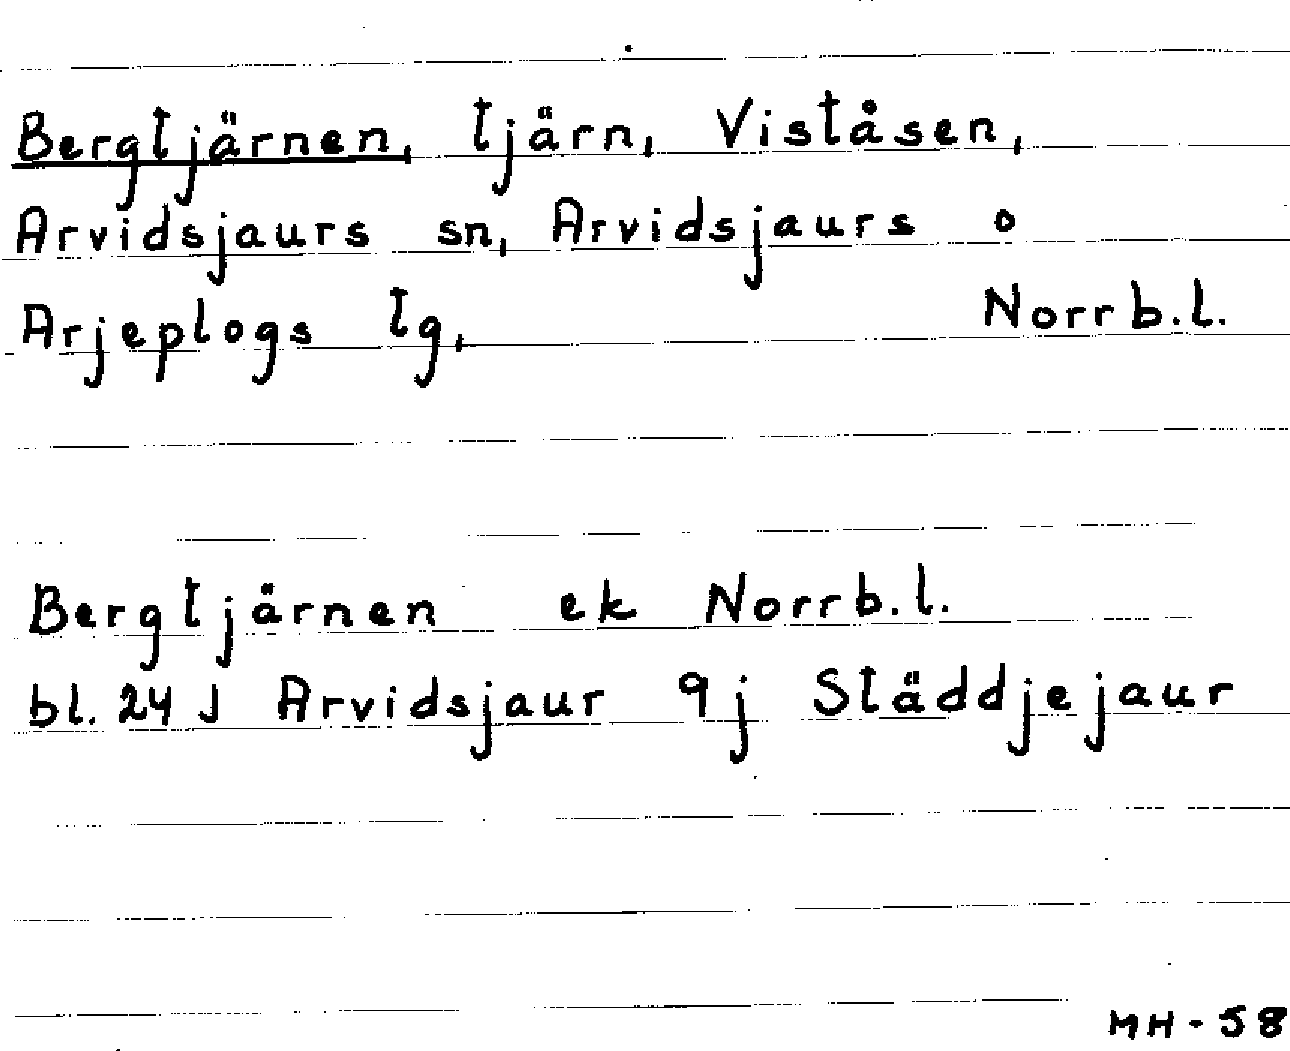 Bergtjärnen, tjärn, Viståsen,
Arvidsjaurs sn, Arvidsjaurs o
Arjeplogs lg, Norrb.l.
Bergtjärnen ek Norrb.l.
bl. 24 J Arvidsjaur 9j Släddjejaur
MH-58